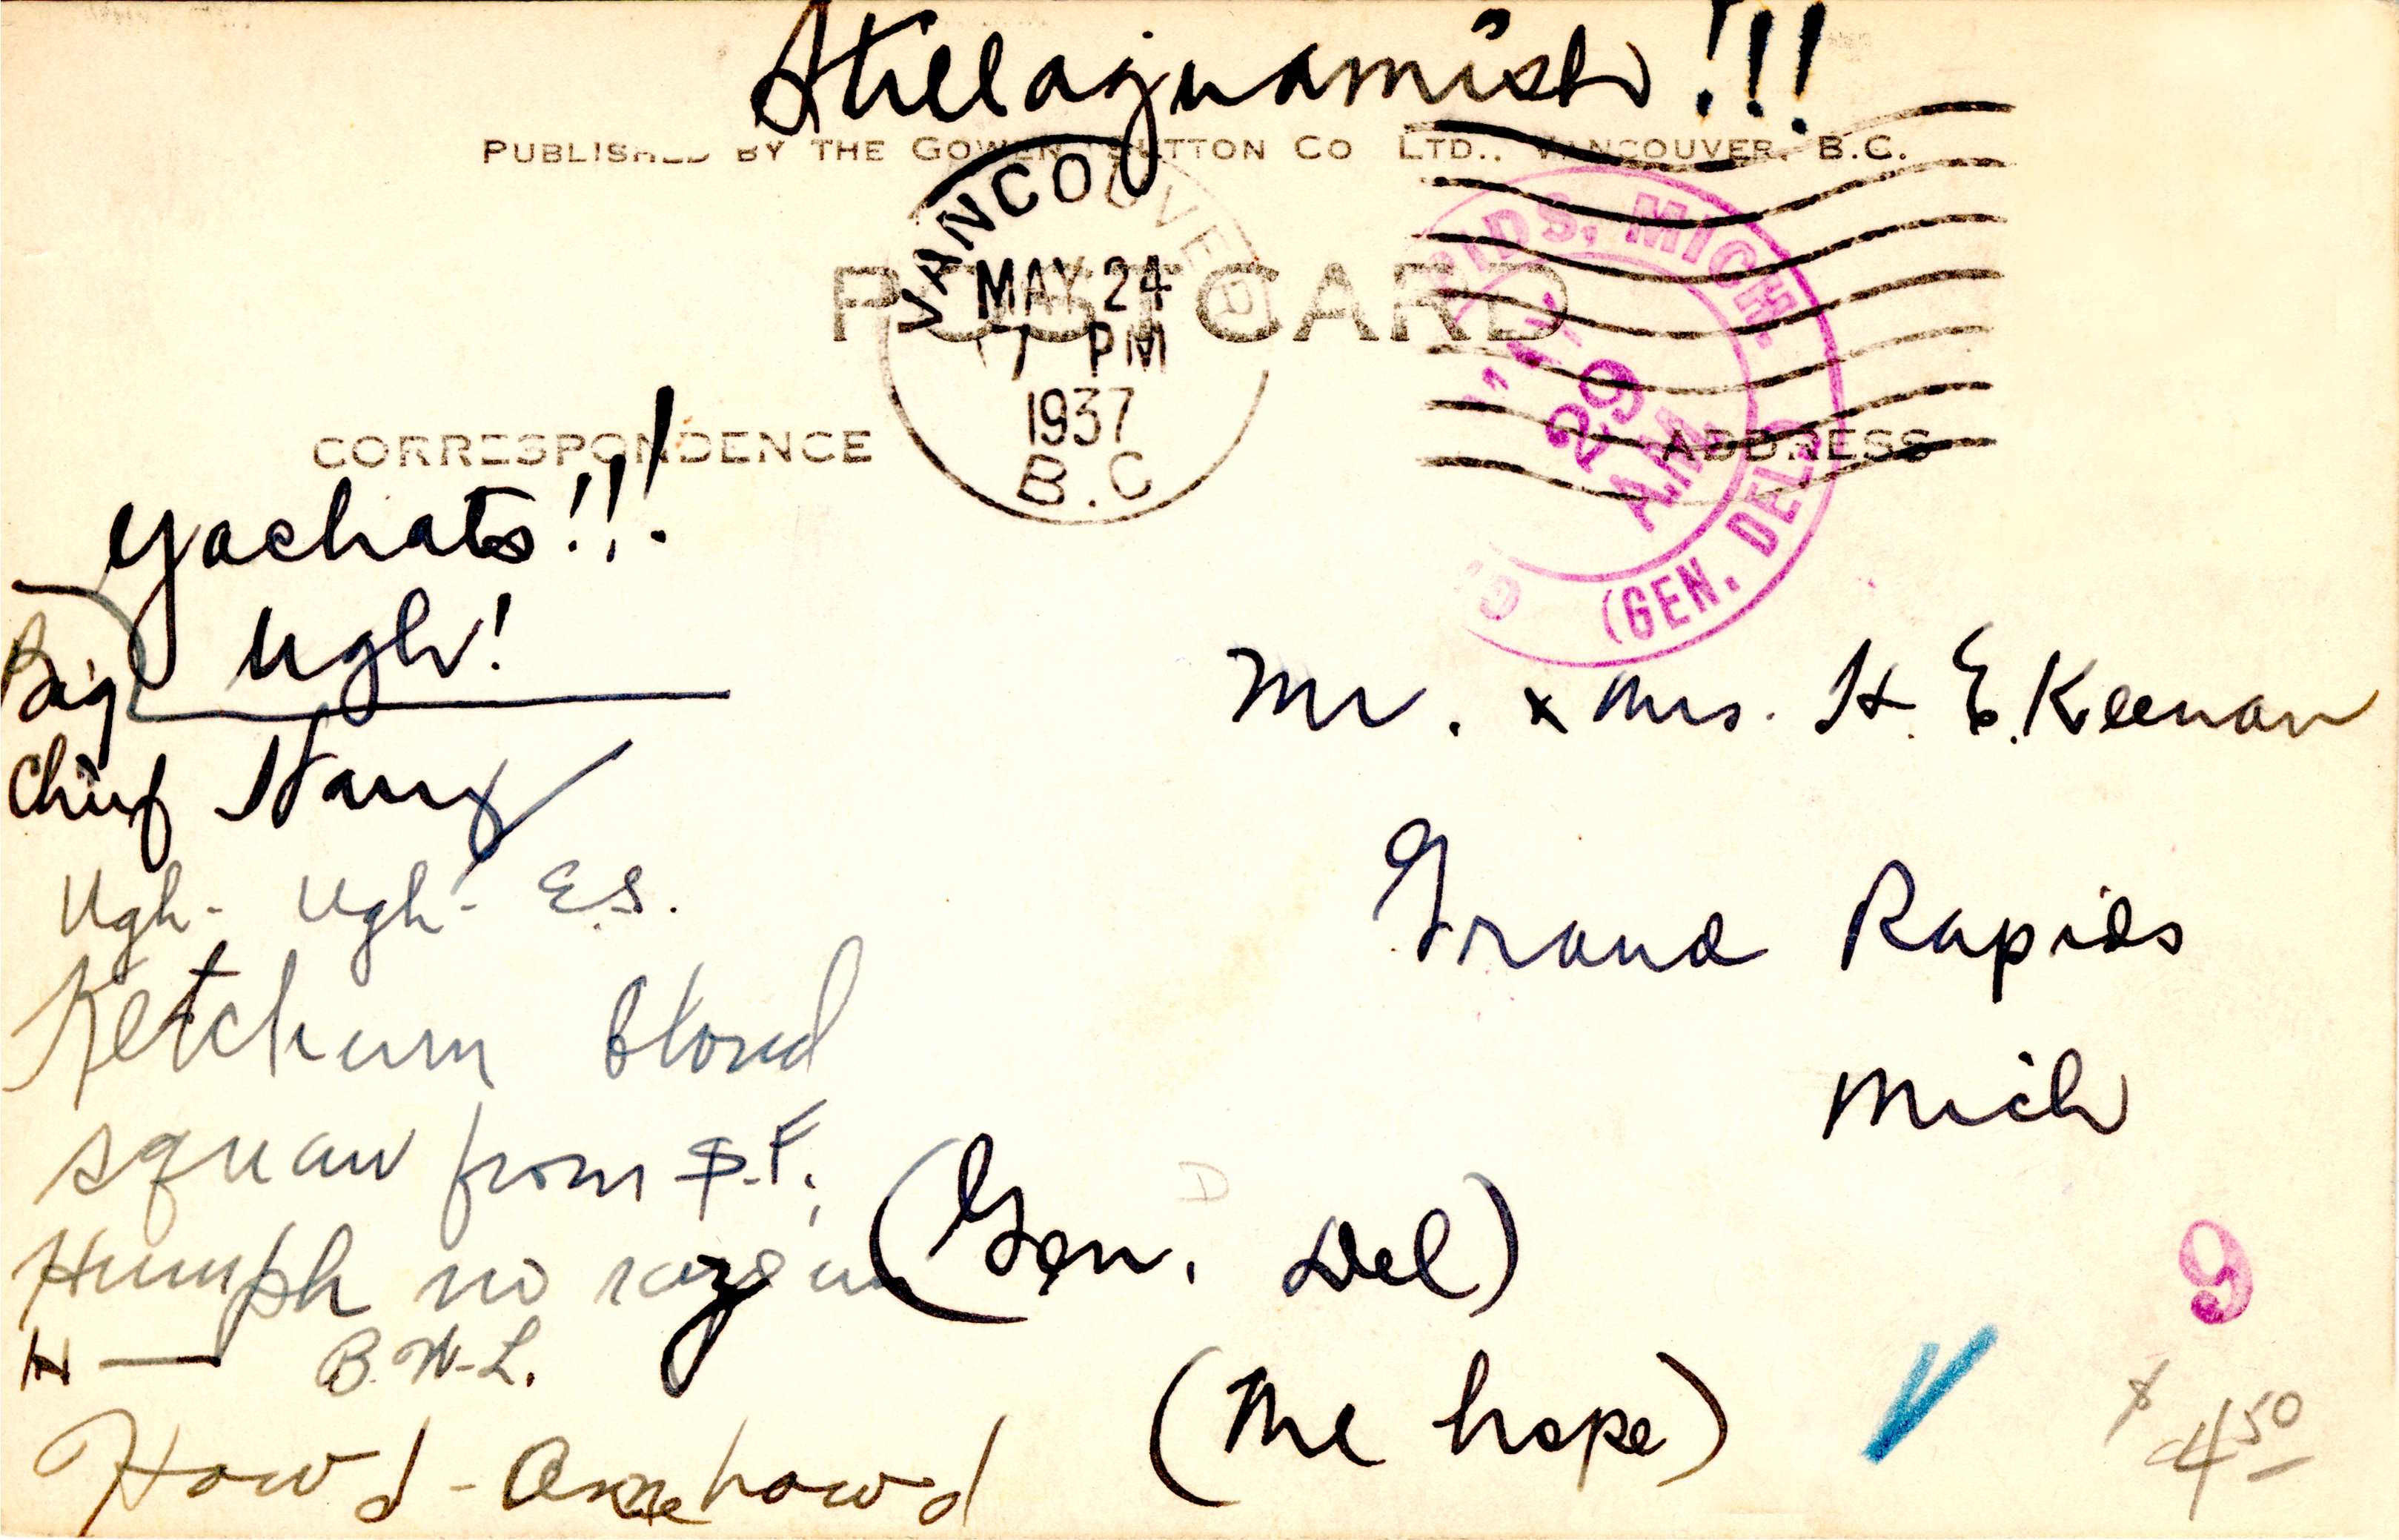 Stillaguamish!!!
PUBLISHED BY THE GOWEN SUTTON CO LTD., VANCOUVER, B.C.
POST CARD
VANCOUVER
MAY 24
7 PM
1937
B.C
IDS, MICH.
29
AM
(GEN. DEL.)
CORRESPONDENCE
ADDRESS
Yachats!!!
Ugh!
Big
Chief Harry
Ugh- Ugh- E.S.
Ketchum blond
squaw from S.F.
Humph no
H — B.W-L.
How'd - how'd
Mr. & Mrs. H. E. Keenan
Grand Rapids
Mich
(Gen. Del)
(Me hope)
9
$ 4 50